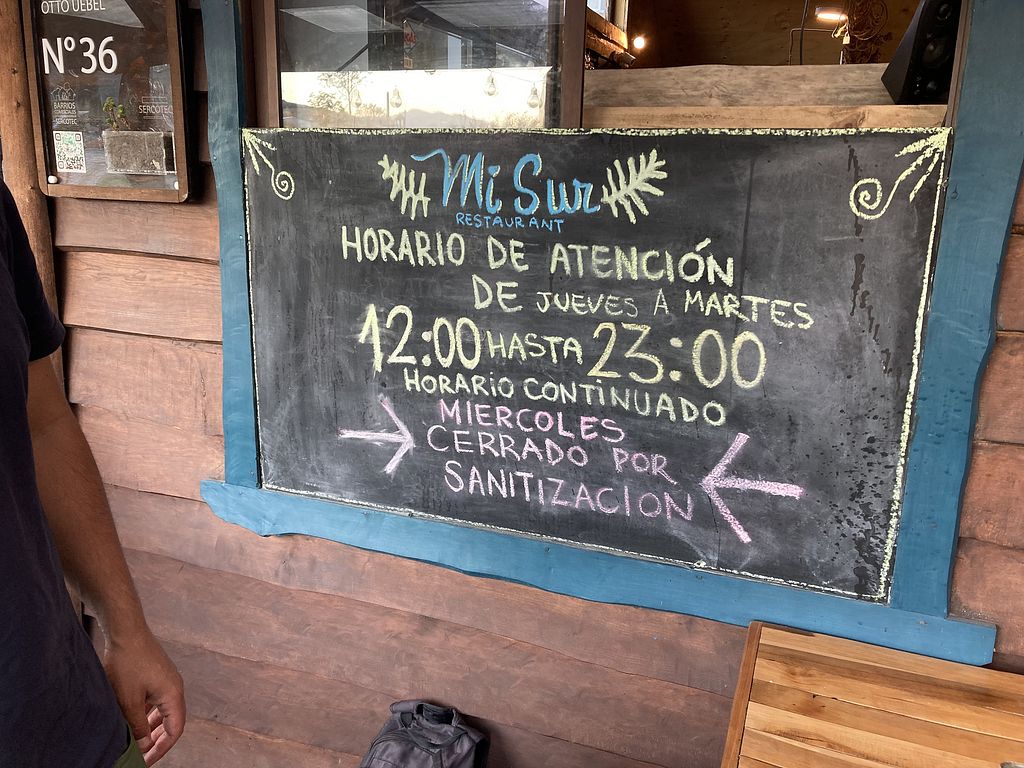 OTTO UEBEL
Nº36
BARRIOS
COMERCIALES
SERCOTEC
SERCOTEC
Mi Sur
RESTAURANT
HORARIO DE ATENCIÓN
DE JUEVES A MARTES
12:00 HASTA 23:00
HORARIO CONTINUADO
MIERCOLES
CERRADO POR
SANITIZACION